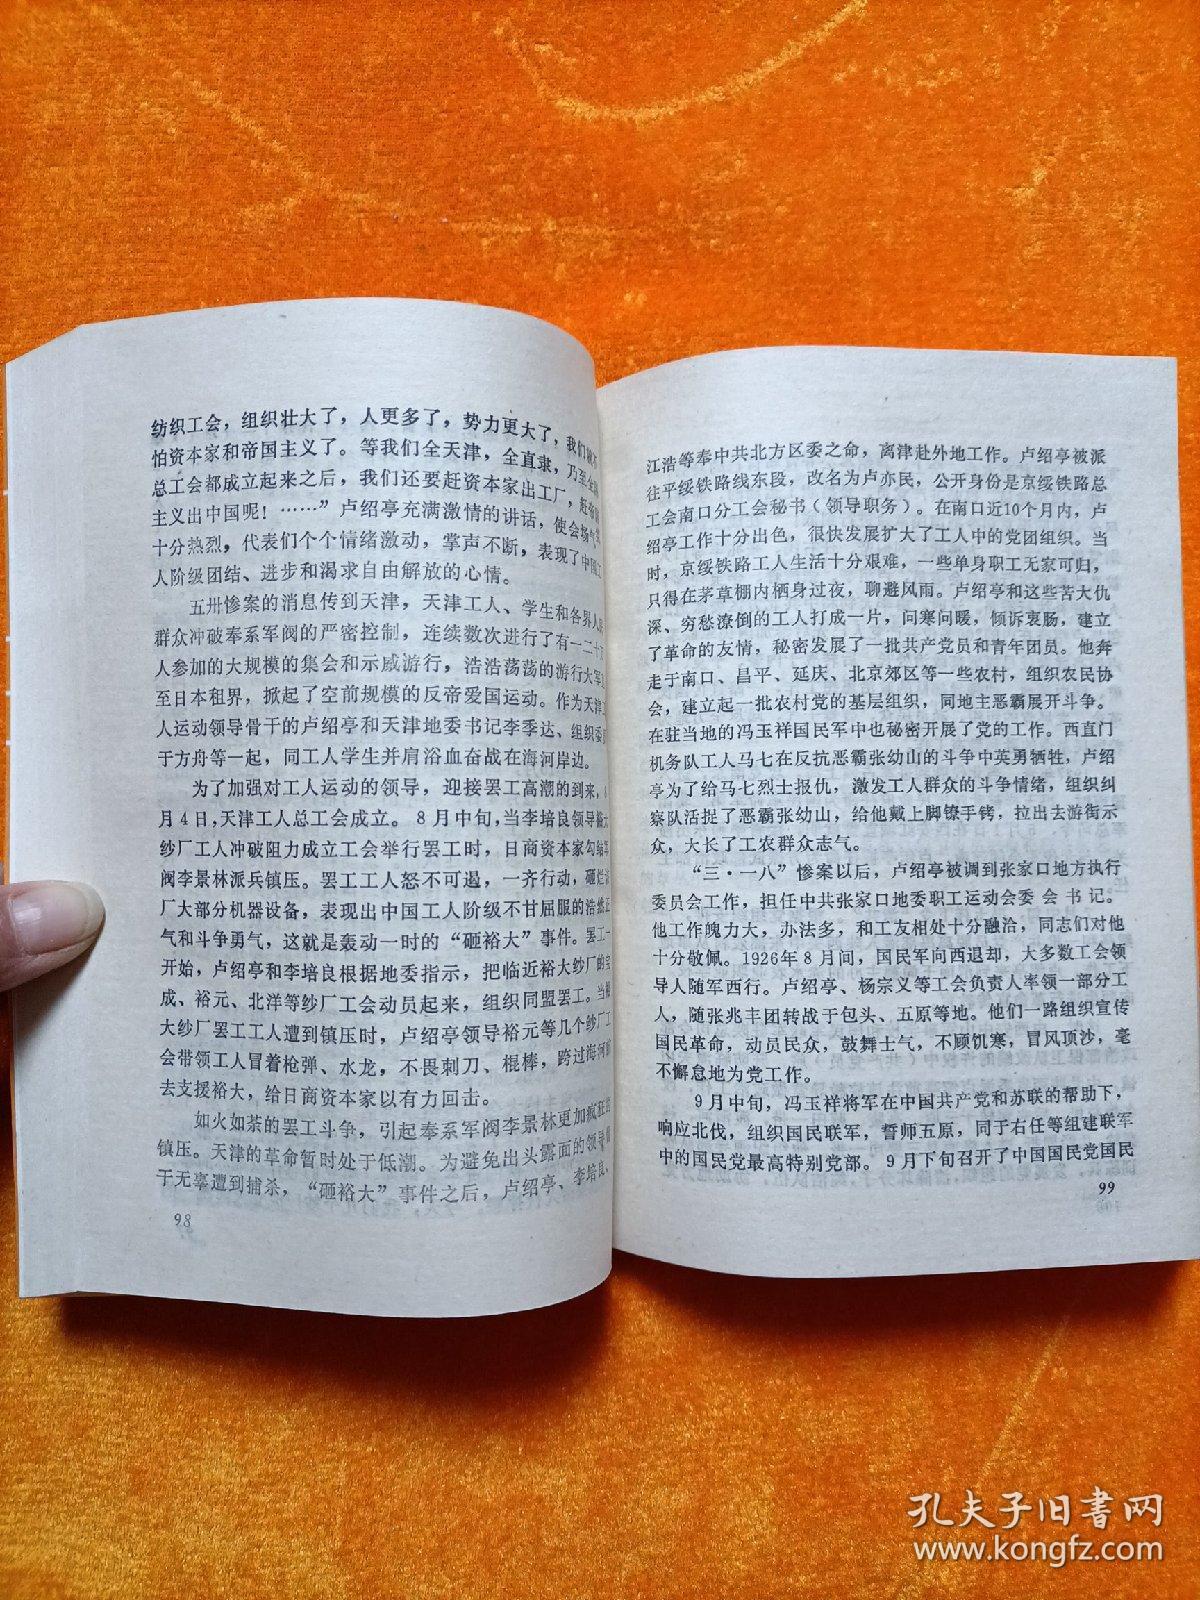 纺织工会，组织壮大了，人更多了，势力更大了，我们
怕资本家和帝国主义了。等我们全天津，全直隶，乃至全
总工会都成立起来之后，我们还要赶资本家出工厂，赶帝
主义出中国呢！……”卢绍亭充满激情的讲话，使会场气
十分热烈，代表们个个情绪激动，掌声不断，表现了中国工
人阶级团结、进步和渴求自由解放的心情。
五卅惨案的消息传到天津，天津工人、学生和各界人
群众冲破奉系军阀的严密控制，连续数次进行了有一二十万
人参加的大规模的集会和示威游行，浩浩荡荡的游行大军
至日本租界，掀起了空前规模的反帝爱国运动。作为天津工
人运动领导骨干的卢绍亭和天津地委书记李季达、组织委
于方舟等一起，同工人学生并肩浴血奋战在海河岸边。
为了加强对工人运动的领导，迎接罢工高潮的到来，
月4日，天津工人总工会成立。8月中旬，当李培良领导裕大
纱厂工人冲破阻力成立工会举行罢工时，日商资本家勾结军
阀李景林派兵镇压。罢工工人怒不可遏，一齐行动，砸烂
厂大部分机器设备，表现出中国工人阶级不甘屈服的浩然正
气和斗争勇气，这就是轰动一时的“砸裕大”事件。罢工一
开始，卢绍亭和李培良根据地委指示，把临近裕大纱厂的宝
成、裕元、北洋等纱厂工会动员起来，组织同盟罢工。当裕
大纱厂罢工工人遭到镇压时，卢绍亭领导裕元等几个纱厂工
会带领工人冒着枪弹、水龙，不畏刺刀、棍棒，跨过海河
去支援裕大，给日商资本家以有力回击。
如火如荼的罢工斗争，引起奉系军阀李景林更加疯狂的
镇压。天津的革命暂时处于低潮。为避免出头露面的领导
干无辜遭到捕杀，“砸裕大”事件之后，卢绍亭、李培良、
98
江浩等奉中共北方区委之命，离津赴外地工作。卢绍亭被派
往平绥铁路线东段，改名为卢亦民，公开身份是京绥铁路总
工会南口分工会秘书（领导职务）。在南口近10个月内，卢
绍亭工作十分出色，很快发展扩大了工人中的党团组织。当
时，京绥铁路工人生活十分艰难，一些单身职工无家可归，
只得在茅草棚内栖身过夜，聊避风雨。卢绍亭和这些苦大仇
深、穷愁潦倒的工人打成一片，问寒问暖，倾诉衷肠，建立
了革命的友情，秘密发展了一批共产党员和青年团员。他奔
走于南口、昌平、延庆、北京郊区等一些农村，组织农民协
会，建立起一批农村党的基层组织，同地主恶霸展开斗争。
在驻当地的冯玉祥国民军中也秘密开展了党的工作。西直门
机务队工人马七在反抗恶霸张幼山的斗争中英勇牺牲，卢绍
亭为了给马七烈士报仇，激发工人群众的斗争情绪，组织纠
察队活捉了恶霸张幼山，给他戴上脚镣手铐，拉出去游街示
众，大长了工农群众志气。
“三·一八”惨案以后，卢绍亭被调到张家口地方执行
委员会工作，担任中共张家口地委职工运动会委会书记。
他工作魄力大，办法多，和工友相处十分融洽，同志们对他
十分敬佩。1926年8月间，国民军向西退却，大多数工会领
导人随军西行。卢绍亭、杨宗义等工会负责人率领一部分工
人，随张兆丰团转战于包头、五原等地。他们一路组织宣传
国民革命，动员民众，鼓舞士气，不顾饥寒，冒风顶沙，毫
不懈怠地为党工作。
9月中旬，冯玉祥将军在中国共产党和苏联的帮助下，
响应北伐，组织国民联军，誓师五原，同于右任等组建联军
中的国民党最高特别党部。9月下旬召开了中国国民党国民
99
孔夫子旧书网
www.kongfz.com